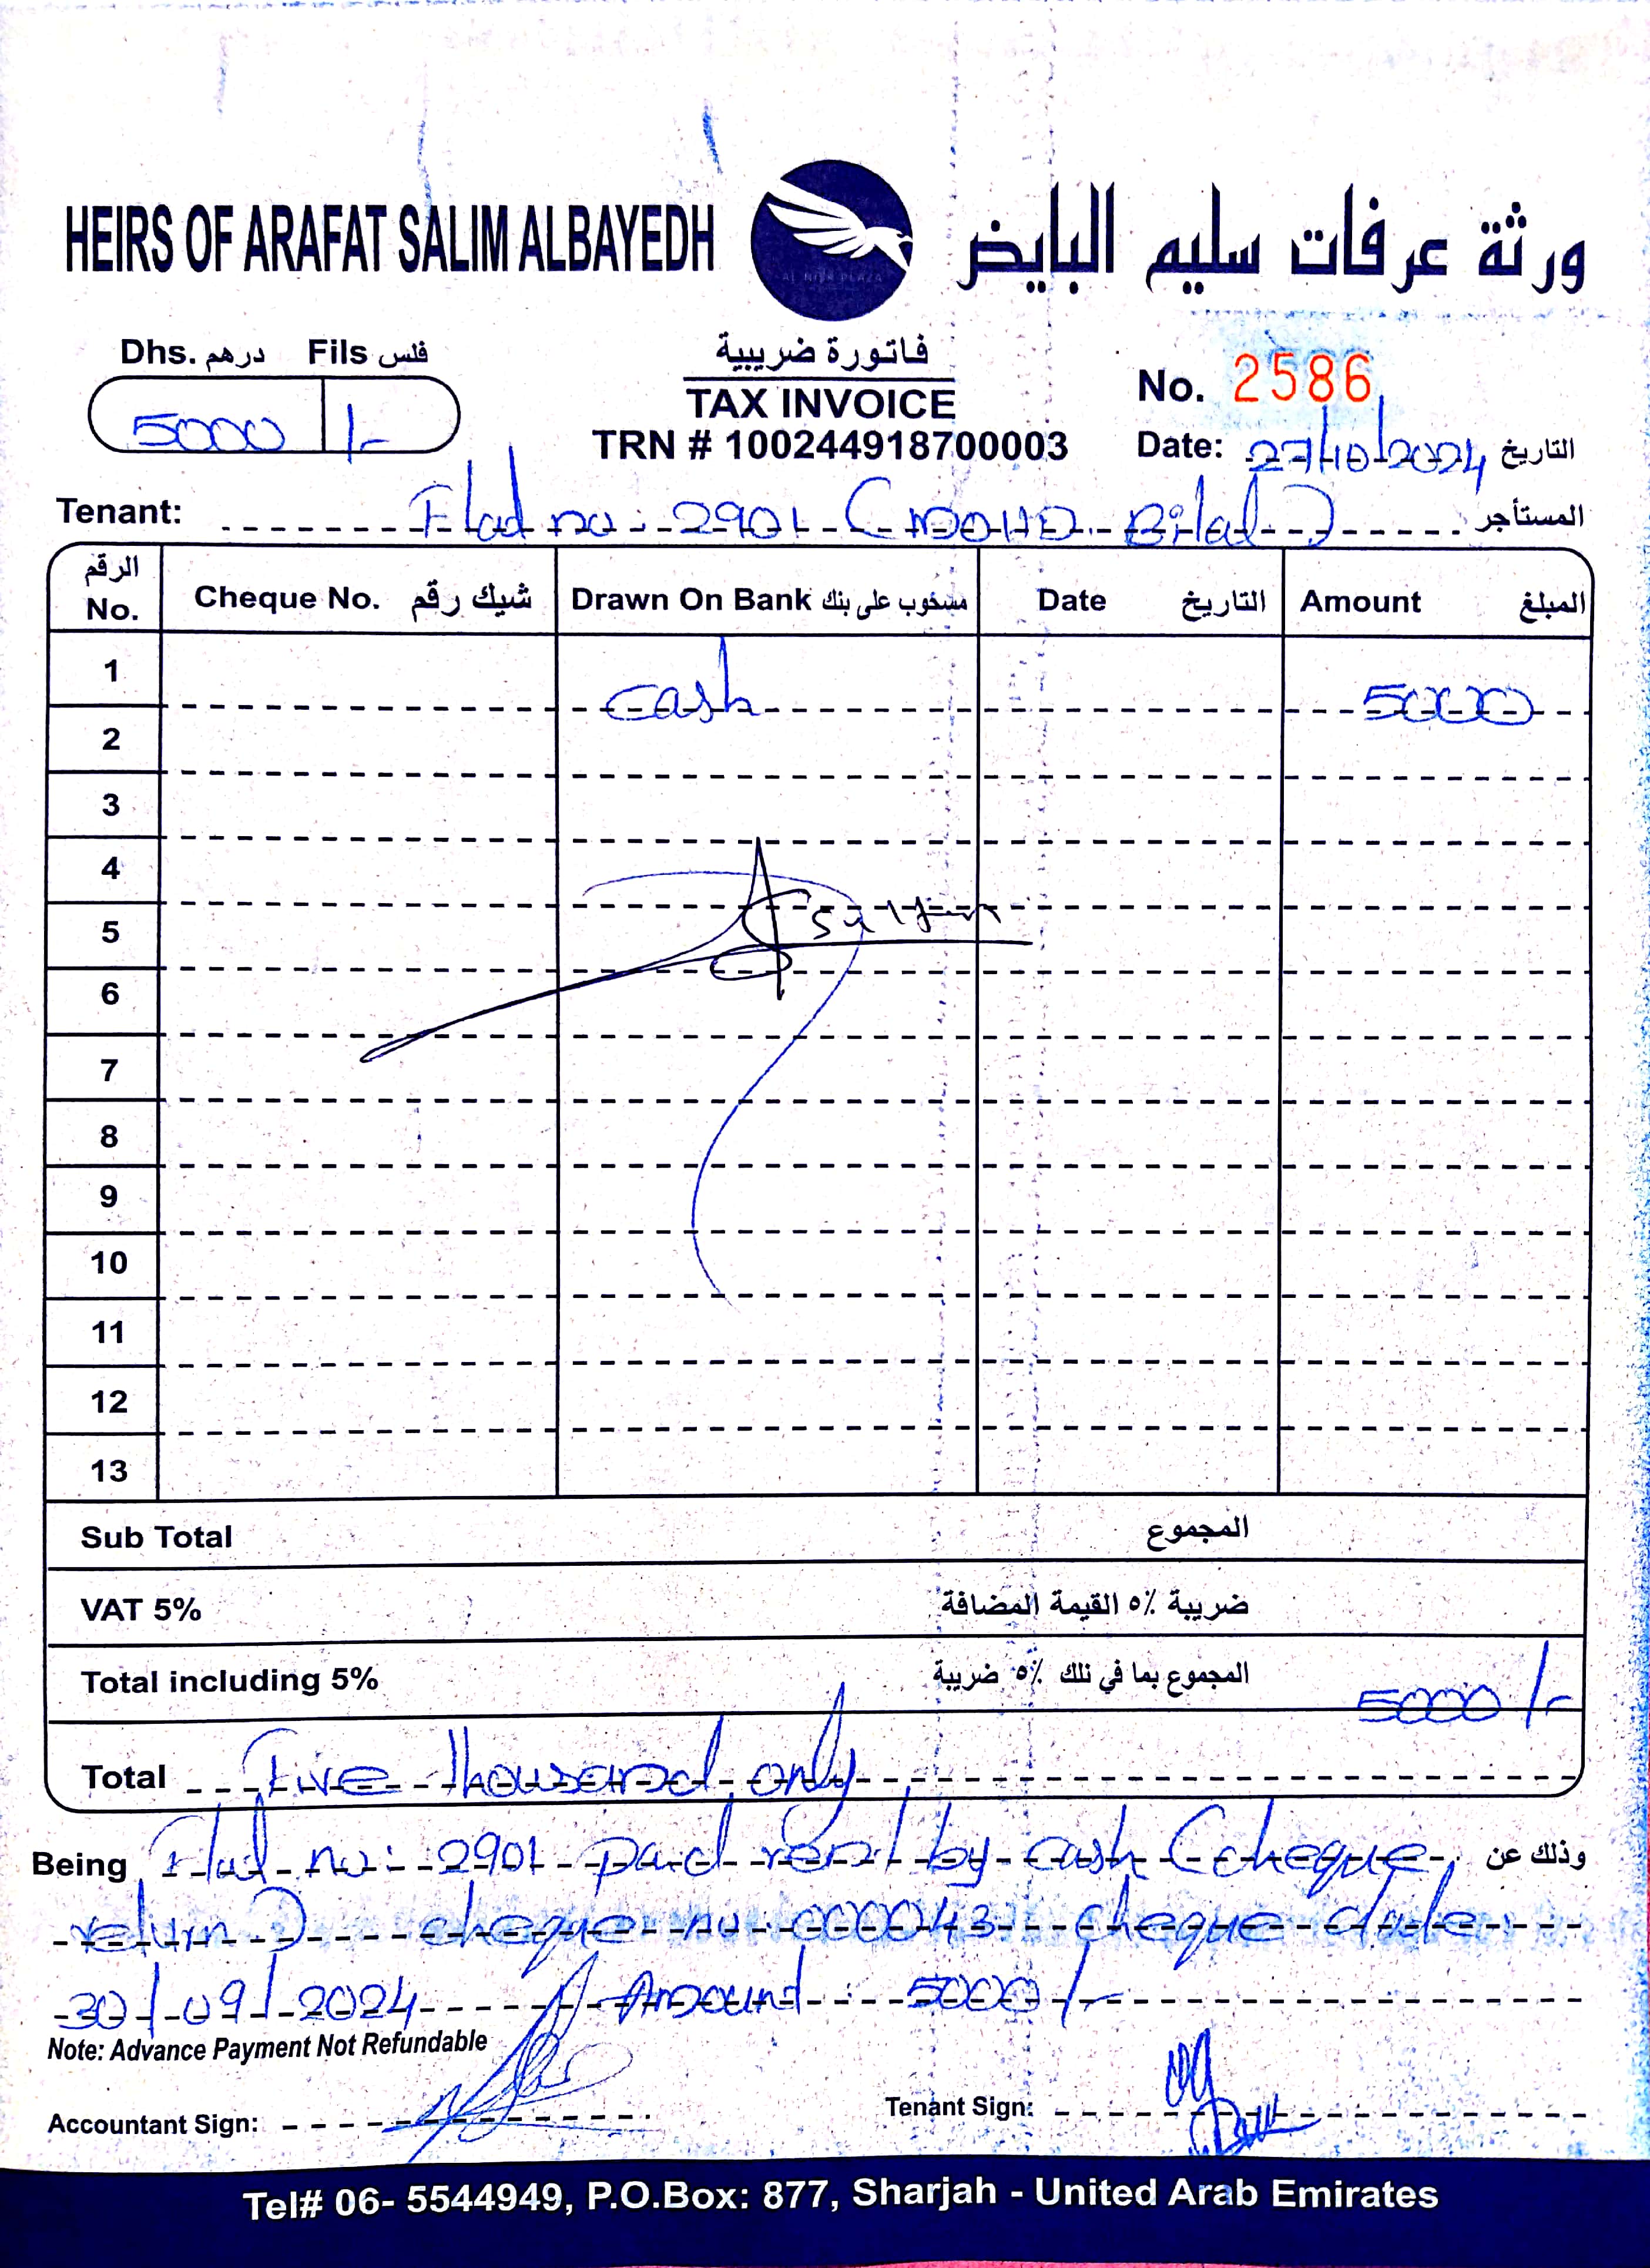 HEIRS OF ARAFAT SALIM ALBAYEDH
ورثة عرفات سليم البايض
AL NISR PLAZA
Dhs. درهم Fils فلس
5000 /-
فاتورة ضريبية
TAX INVOICE
TRN # 100244918700003
No. 2586
Date: 27/10/2024 التاريخ
Tenant: Flat no: 2901 (MOHD Bilal) المستأجر
الرقم No. Cheque No. شيك رقم Drawn On Bank مسحوب على بنك Date التاريخ Amount المبلغ
1 cash 5000
2
3
4
5
6
7
8
9
10
11
12
13
Sub Total المجموع
VAT 5% ضريبة ٥٪ القيمة المضافة
Total including 5% المجموع بما في ذلك ٥٪ ضريبة 5000/-
Total Five thousand only
Being Flat no: 2901 paid rent by cash (cheque وذلك عن
return) cheque no: 000043 cheque date:
30/09/2024 Amount: 5000/-
Note: Advance Payment Not Refundable
Accountant Sign:
Tenant Sign:
Tel# 06- 5544949, P.O.Box: 877, Sharjah - United Arab Emirates